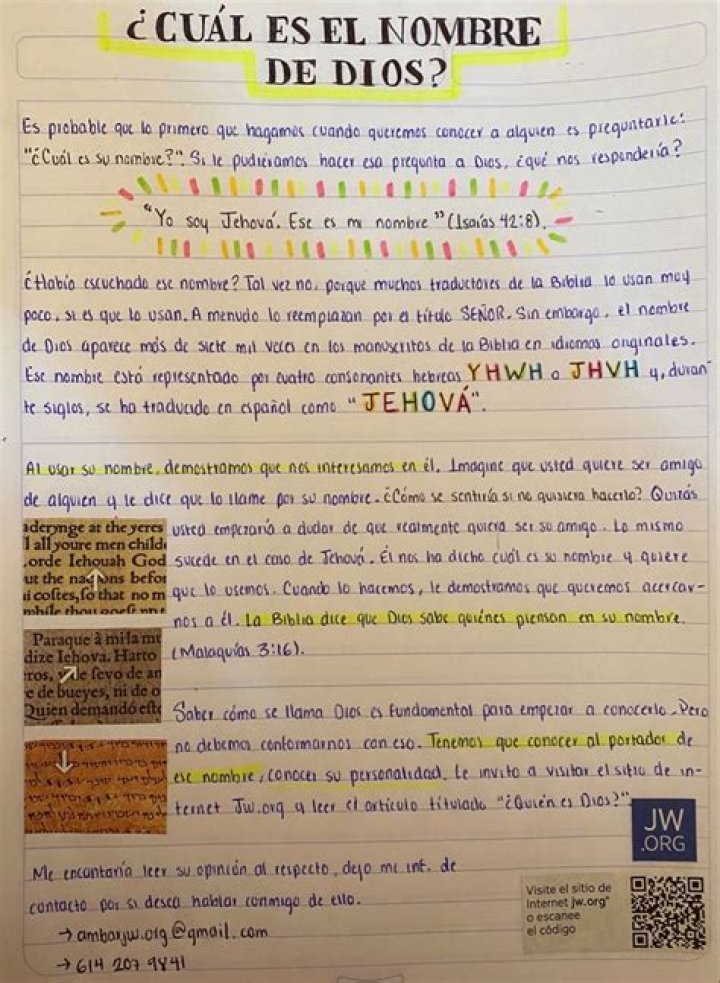 ¿CUÁL ES EL NOMBRE
DE DIOS?
Es probable que lo primero que hagamos cuando queremos conocer a alguien es preguntarle:
"¿Cuál es su nombre?". Si le pudiéramos hacer esa pregunta a Dios, ¿qué nos respondería?
"Yo soy Jehová. Ese es mi nombre" (Isaías 42:8).
¿Había escuchado ese nombre? Tal vez no, porque muchos traductores de la Biblia lo usan muy
poco, si es que lo usan. A menudo lo reemplazan por el título SEÑOR. Sin embargo, el nombre
de Dios aparece más de siete mil veces en los manuscritos de la Biblia en idiomas originales.
Ese nombre está representado por cuatro consonantes hebreas YHWH o JHVH y, duran-
te siglos, se ha traducido en español como "JEHOVÁ".
Al usar su nombre, demostramos que nos interesamos en él. Imagine que usted quiere ser amigo
de alguien y le dice que lo llame por su nombre. ¿Cómo se sentiría si no quisiera hacerlo? Quizás
usted empezaría a dudar de que realmente quiera ser su amigo. Lo mismo
sucede en el caso de Jehová. Él nos ha dicho cuál es su nombre y quiere
que lo usemos. Cuando lo hacemos, le demostramos que queremos acercar-
nos a él. La Biblia dice que Dios sabe quiénes piensan en su nombre.
(Malaquías 3:16).
aderynge at the yeres
l all youre men child
.orde Iehouah God
ut the nacyons befor
i costes, so that no m
while thou goest
Paraque à mi la mu
dize Iehova. Harto
ros, y de sevo de an
e de bueyes, ni de o
Quien demandó este
Saber cómo se llama Dios es fundamental para empezar a conocerlo. Pero
no debemos conformarnos con eso. Tenemos que conocer al portador de
ese nombre, conocer su personalidad. Le invito a visitar el sitio de in-
ternet Jw.org y leer el artículo titulado "¿Quién es Dios?".
JW
.ORG
Me encantaría leer su opinión al respecto, dejo mi inf. de
contacto por si desea hablar conmigo de ello.
→ ambarjw.org@gmail.com
→ 614 207 9841
Visite el sitio de
Internet jw.org®
o escanee
el código